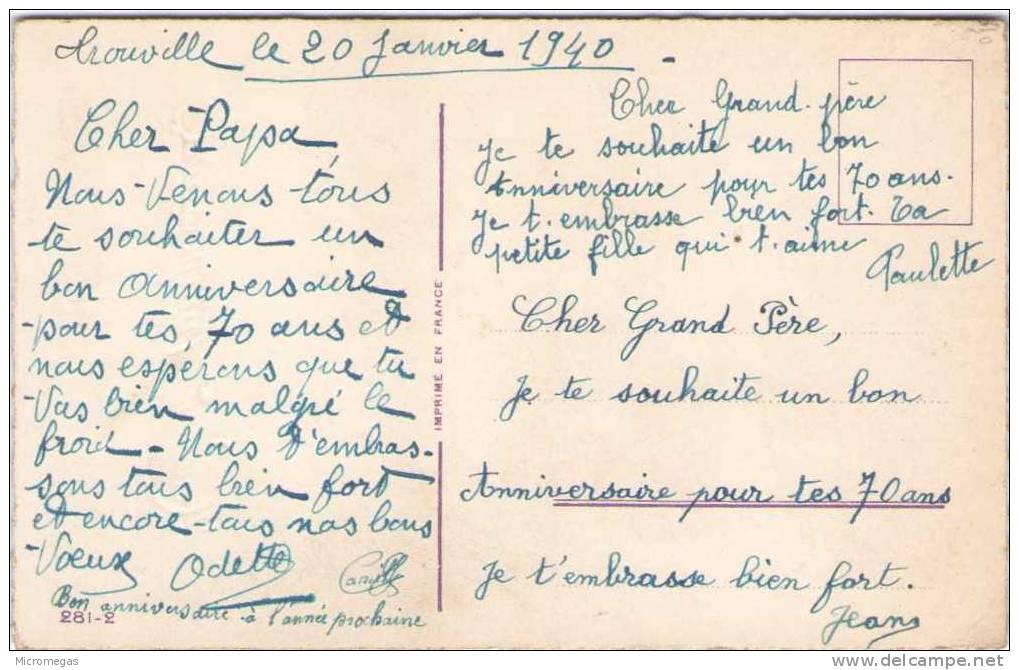 Trouville le 20 Janvier 1940
Cher Papa
Nous Venons tous
te souhaiter un
bon anniversaire
pour tes, 70 ans et
nous espérons que tu
Vas bien malgré le
froid - Nous t'embras-
sons tous bien fort
et encore tous nos bons
Voeux Odette
Camille
Bon anniversaire à l'année prochaine
281-2
IMPRIMÉ EN FRANCE
Cher Grand-père
Je te souhaite un bon
Anniversaire pour tes 70 ans.
Je t'embrasse bien fort. Ta
petite fille qui t'aime
Paulette
Cher Grand Père,
Je te souhaite un bon
Anniversaire pour tes 70 ans
Je t'embrasse bien fort.
Jean
Micromegas
delcampe.net